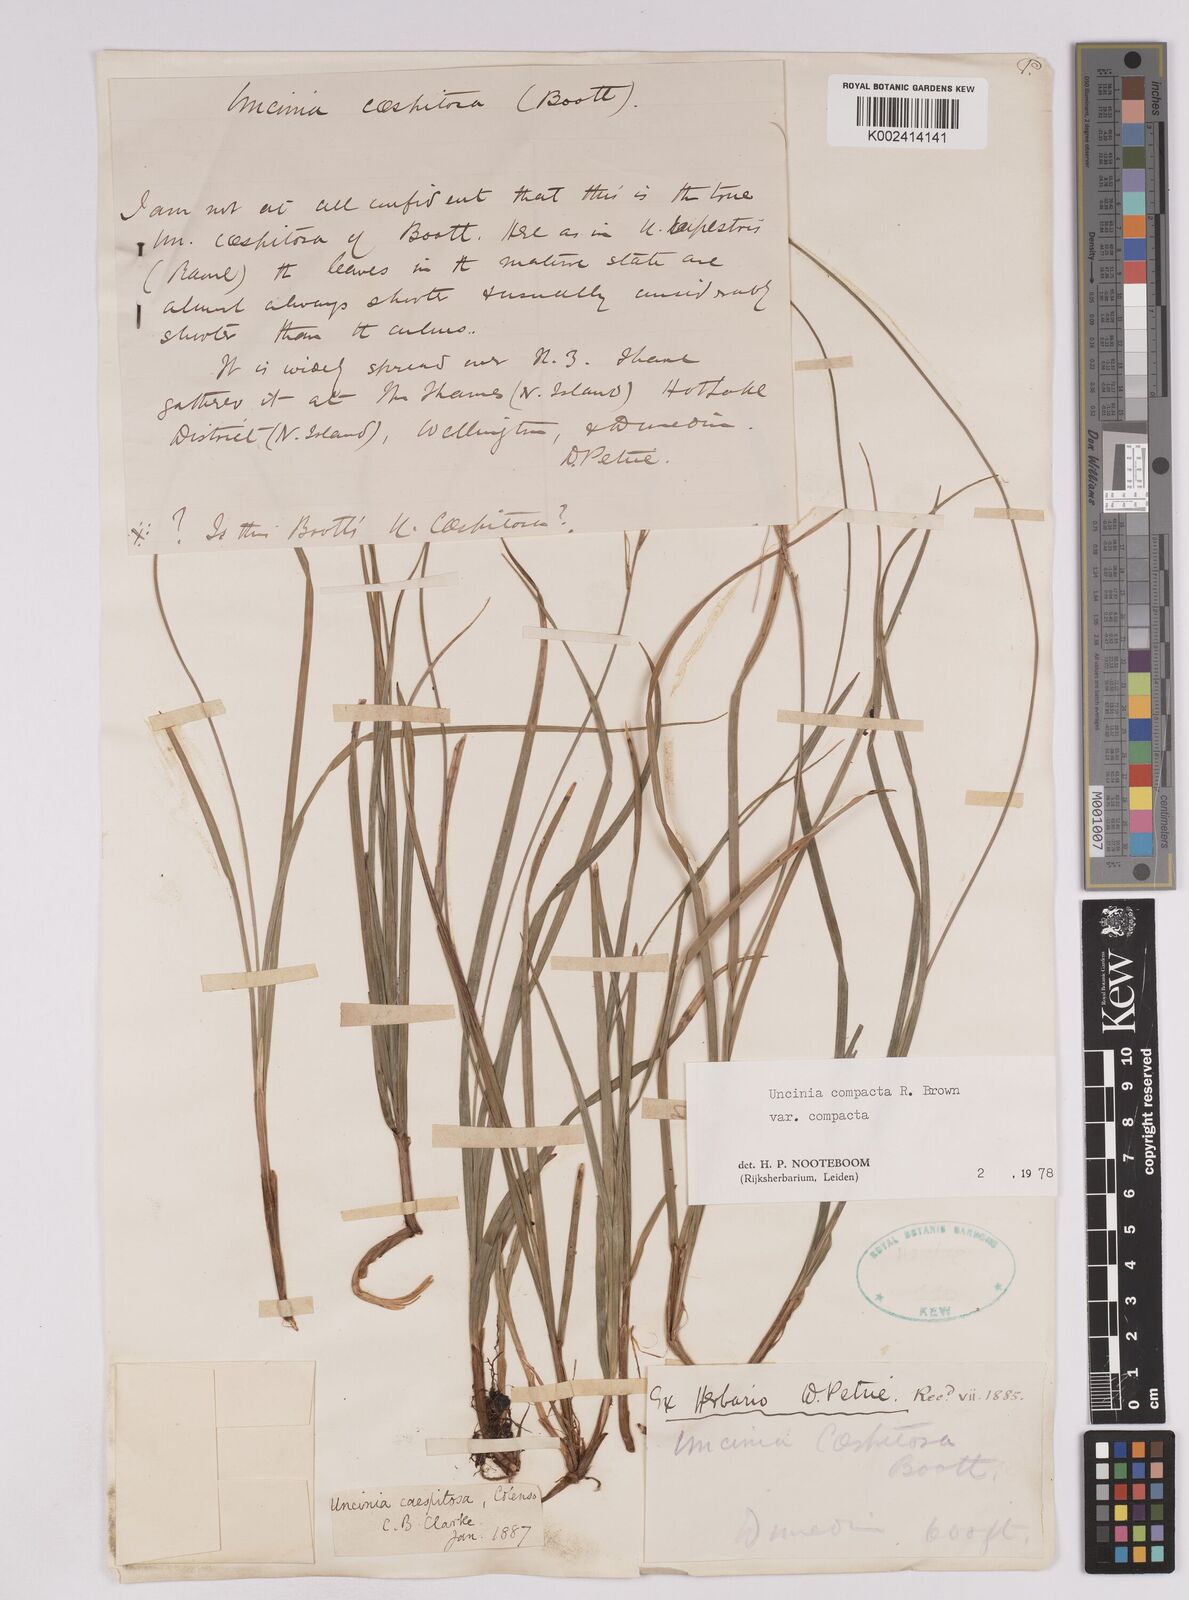 P.
ROYAL BOTANIC GARDENS KEW
K002414141
Uncinia cæspitosa (Boott).
I am not at all confident that this is the true
Un. cæspitosa of Boott. Here as in U. rupestris
(Raoul) the leaves in the mature state are
almost always shorter & usually considerably
shorter than the culms..
It is widely spread over N.Z. I have
gathered it at The Thames (N. Island) Hot Lake
District (N. Island), Wellington, & Dunedin.
D. Petrie.
? Is this Boott's U. Cæspitosa?
Uncinia compacta R. Brown
var. compacta
det. H. P. NOOTEBOOM
(Rijksherbarium, Leiden) 2 , 1978
ROYAL BOTANIC GARDENS
KEW
Ex Herbario D. Petrie. Recd. vii. 1885.
Uncinia Cæspitosa
Boott.
Dunedin 600 ft.
Uncinia caespitosa, Colenso
C. B. Clarke
Jan. 1887
inches
centimetres
Don Williams
M001007
Royal Botanic Gardens
Kew
0 1 2 3 4 5 6 7 8 9 10
cm
copyright reserved